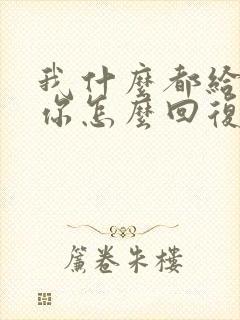 我什麼都給
你怎麼回復
簾卷朱樓